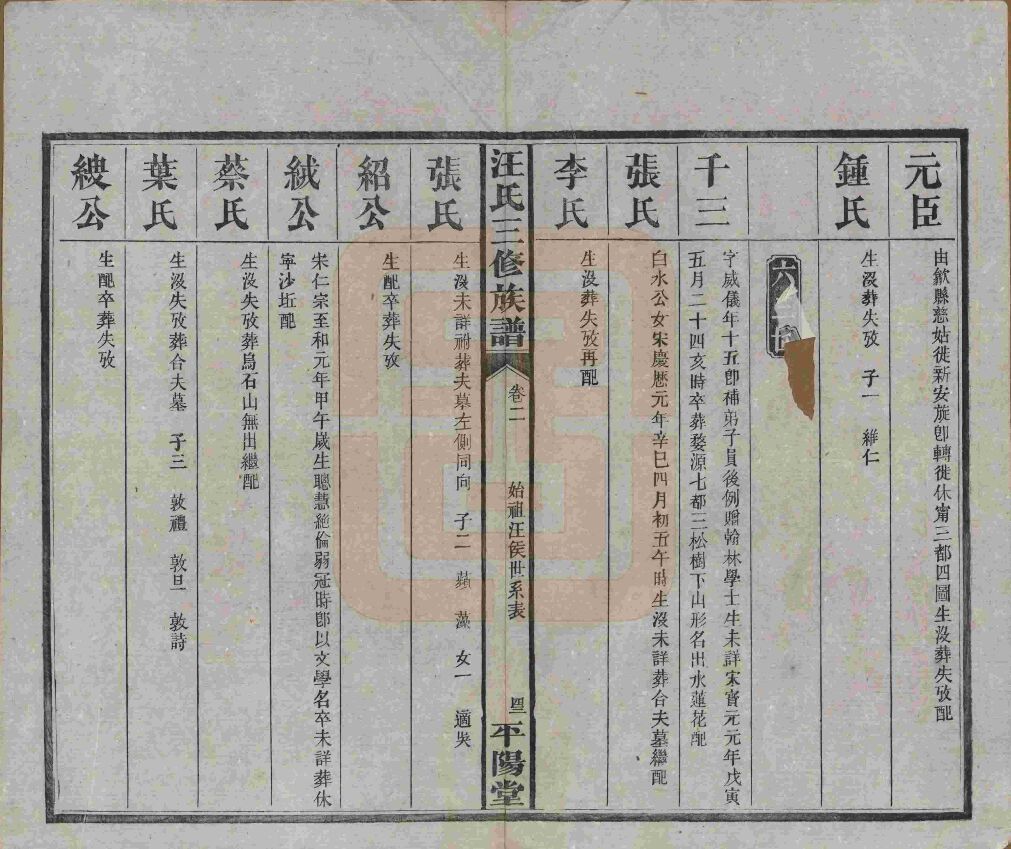 元臣
由歙縣慈姑徙新安旋卽轉徙休甯三都四圖生沒葬失攷配
鍾氏
生沒葬失攷 子一 維仁
六
千三
字威儀年十五卽補弟子員後例贈翰林學士生未詳宋寶元元年戊寅
五月二十四亥時卒葬婺源七都三松樹下山形名出水蓮花配
張氏
白水公女宋慶歷元年辛巳四月初五午時生沒未詳葬合夫墓繼配
李氏
生沒葬失攷再配
汪氏三修族譜
卷二
始祖汪侯世系表
平陽堂
張氏
生沒未詳祔葬夫墓左側同向 子二 蘋 藻 女一 適吳
紹公
生配卒葬失攷
絨公
宋仁宗至和元年甲午歲生聰慧絶倫弱冠時卽以文學名卒未詳葬休
寧沙坵配
蔡氏
生沒失攷葬烏石山無出繼配
葉氏
生沒失攷葬合夫墓 子三 敦禮 敦旦 敦詩
緮公
生配卒葬失攷